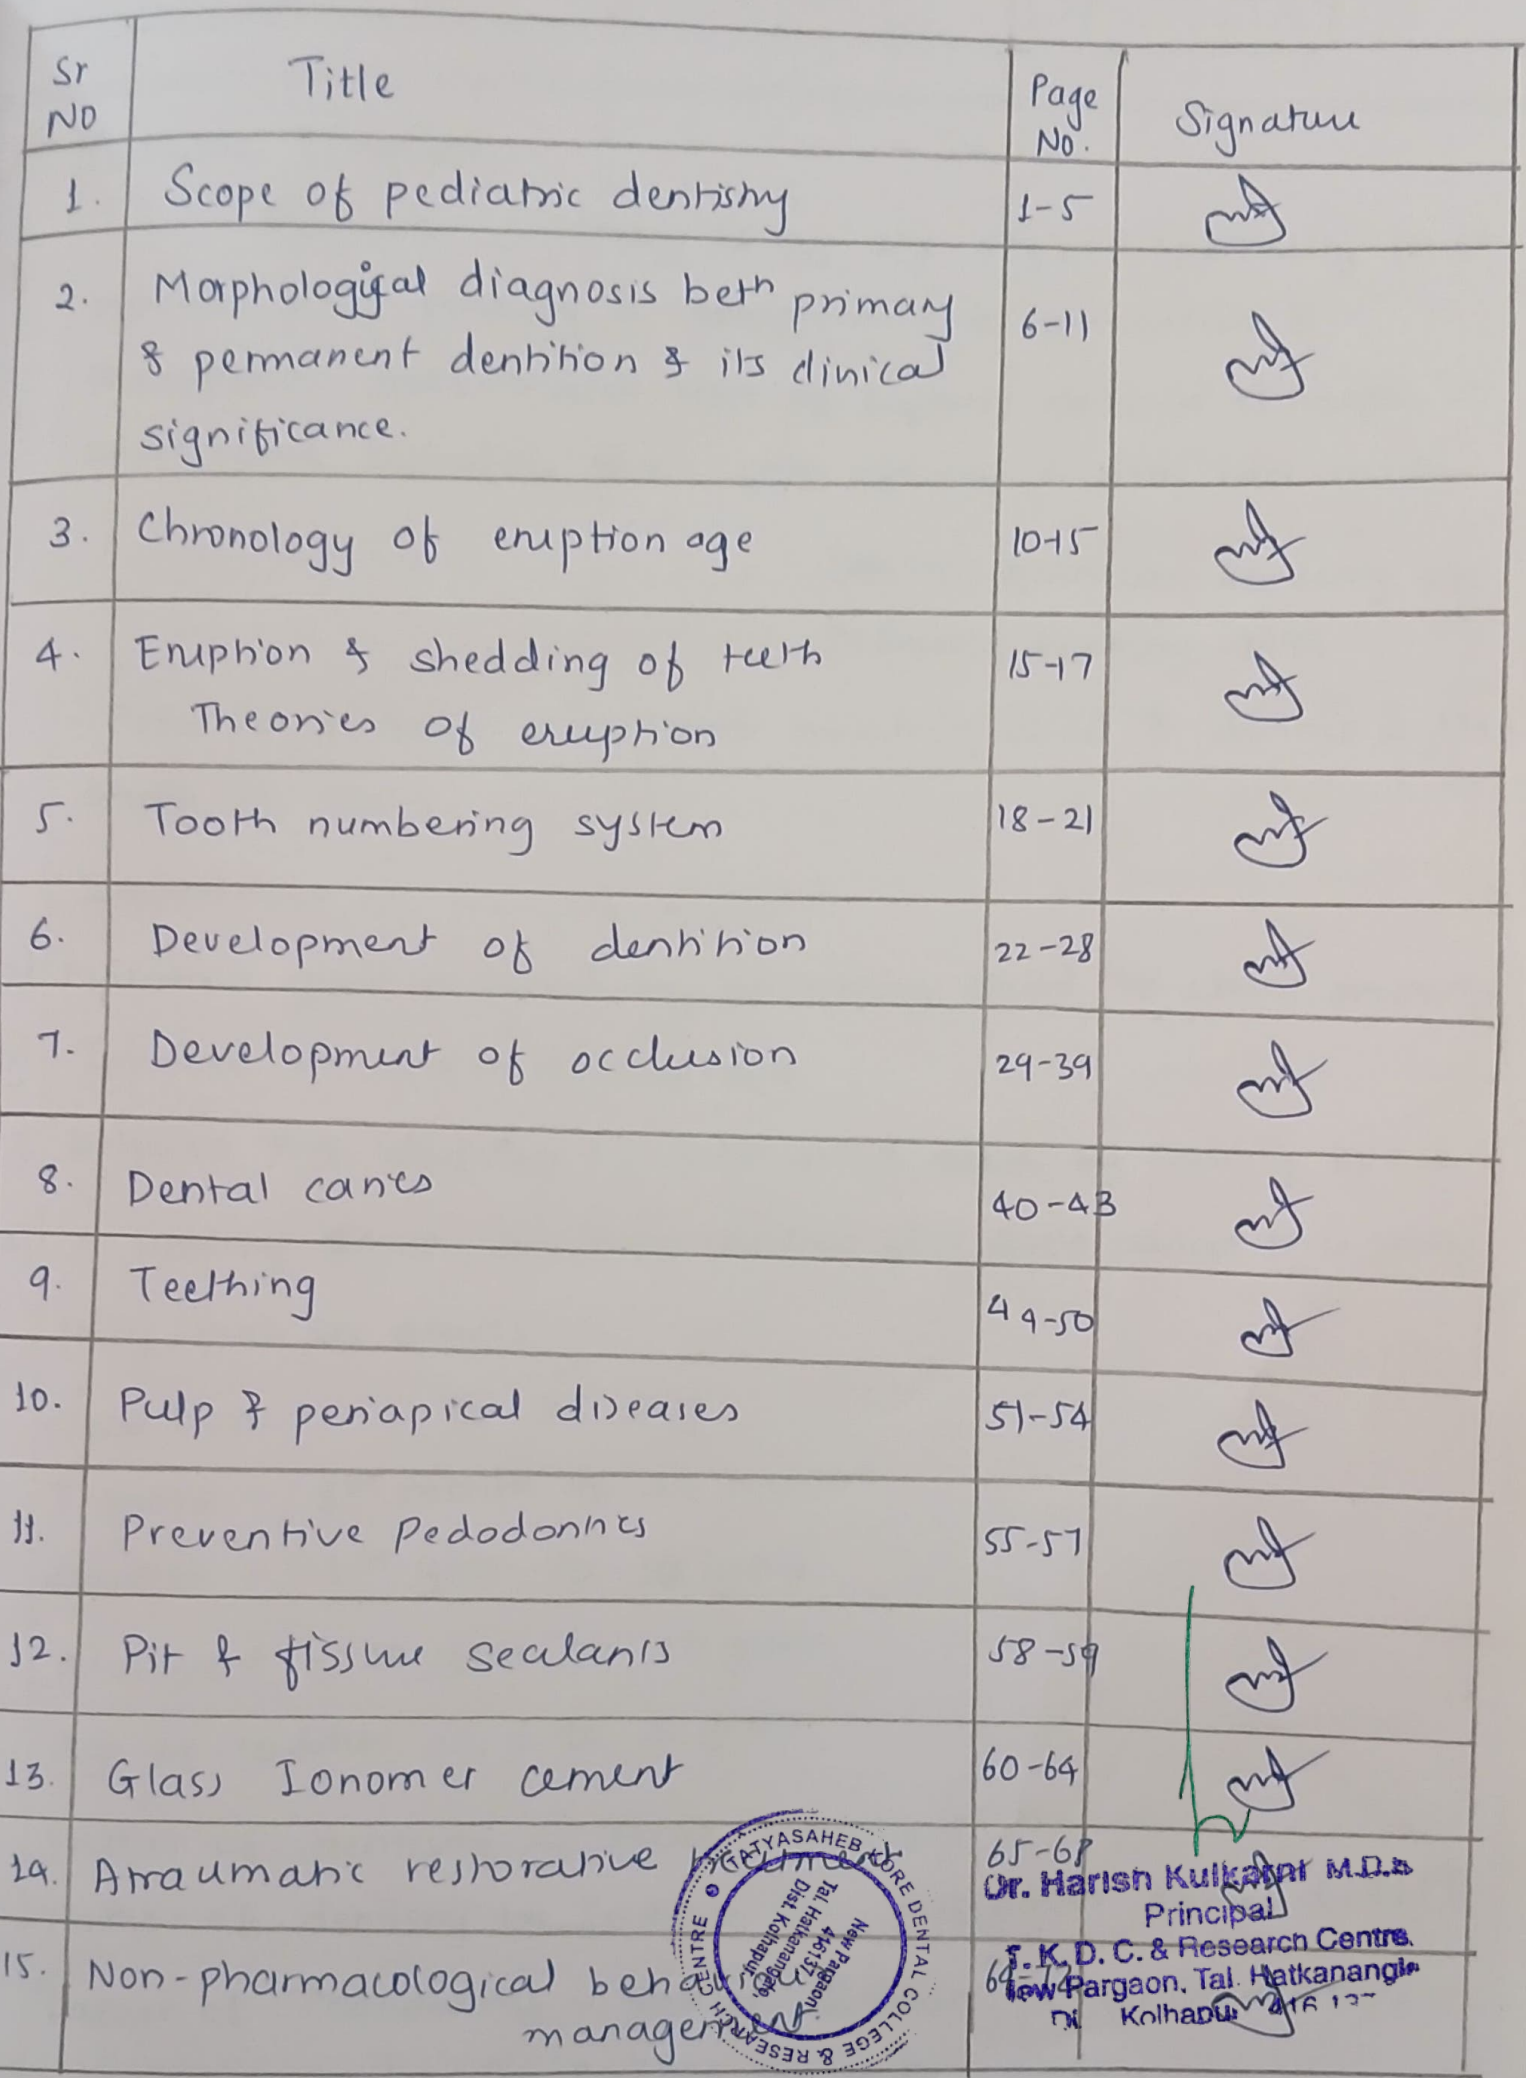 Sr No Title Page No. Signature
1. Scope of pediatric dentistry 1-5
2. Morphological diagnosis betn primary 6-11
& permanent dentition & its clinical
significance.
3. Chronology of eruption age 10-15
4. Eruption & shedding of teeth 15-17
Theories of eruption
5. Tooth numbering system 18-21
6. Development of dentition 22-28
7. Development of occlusion 29-39
8. Dental caries 40-43
9. Teething 49-50
10. Pulp & periapical diseases 51-54
11. Preventive Pedodontics 55-57
12. Pit & fissure sealants 58-59
13. Glass Ionomer cement 60-64
14. Atraumatic restorative treatment 65-68
15. Non-pharmacological behaviour
management
TATYASAHEB KORE DENTAL COLLEGE & RESEARCH CENTRE
New Pargaon,
416137
Tal. Hatkanangale,
Dist. Kolhapur.
Dr. Harish Kulkarni M.D.S
Principal
T. K. D. C. & Research Centre.
New Pargaon. Tal. Hatkanangle
Kolhapur